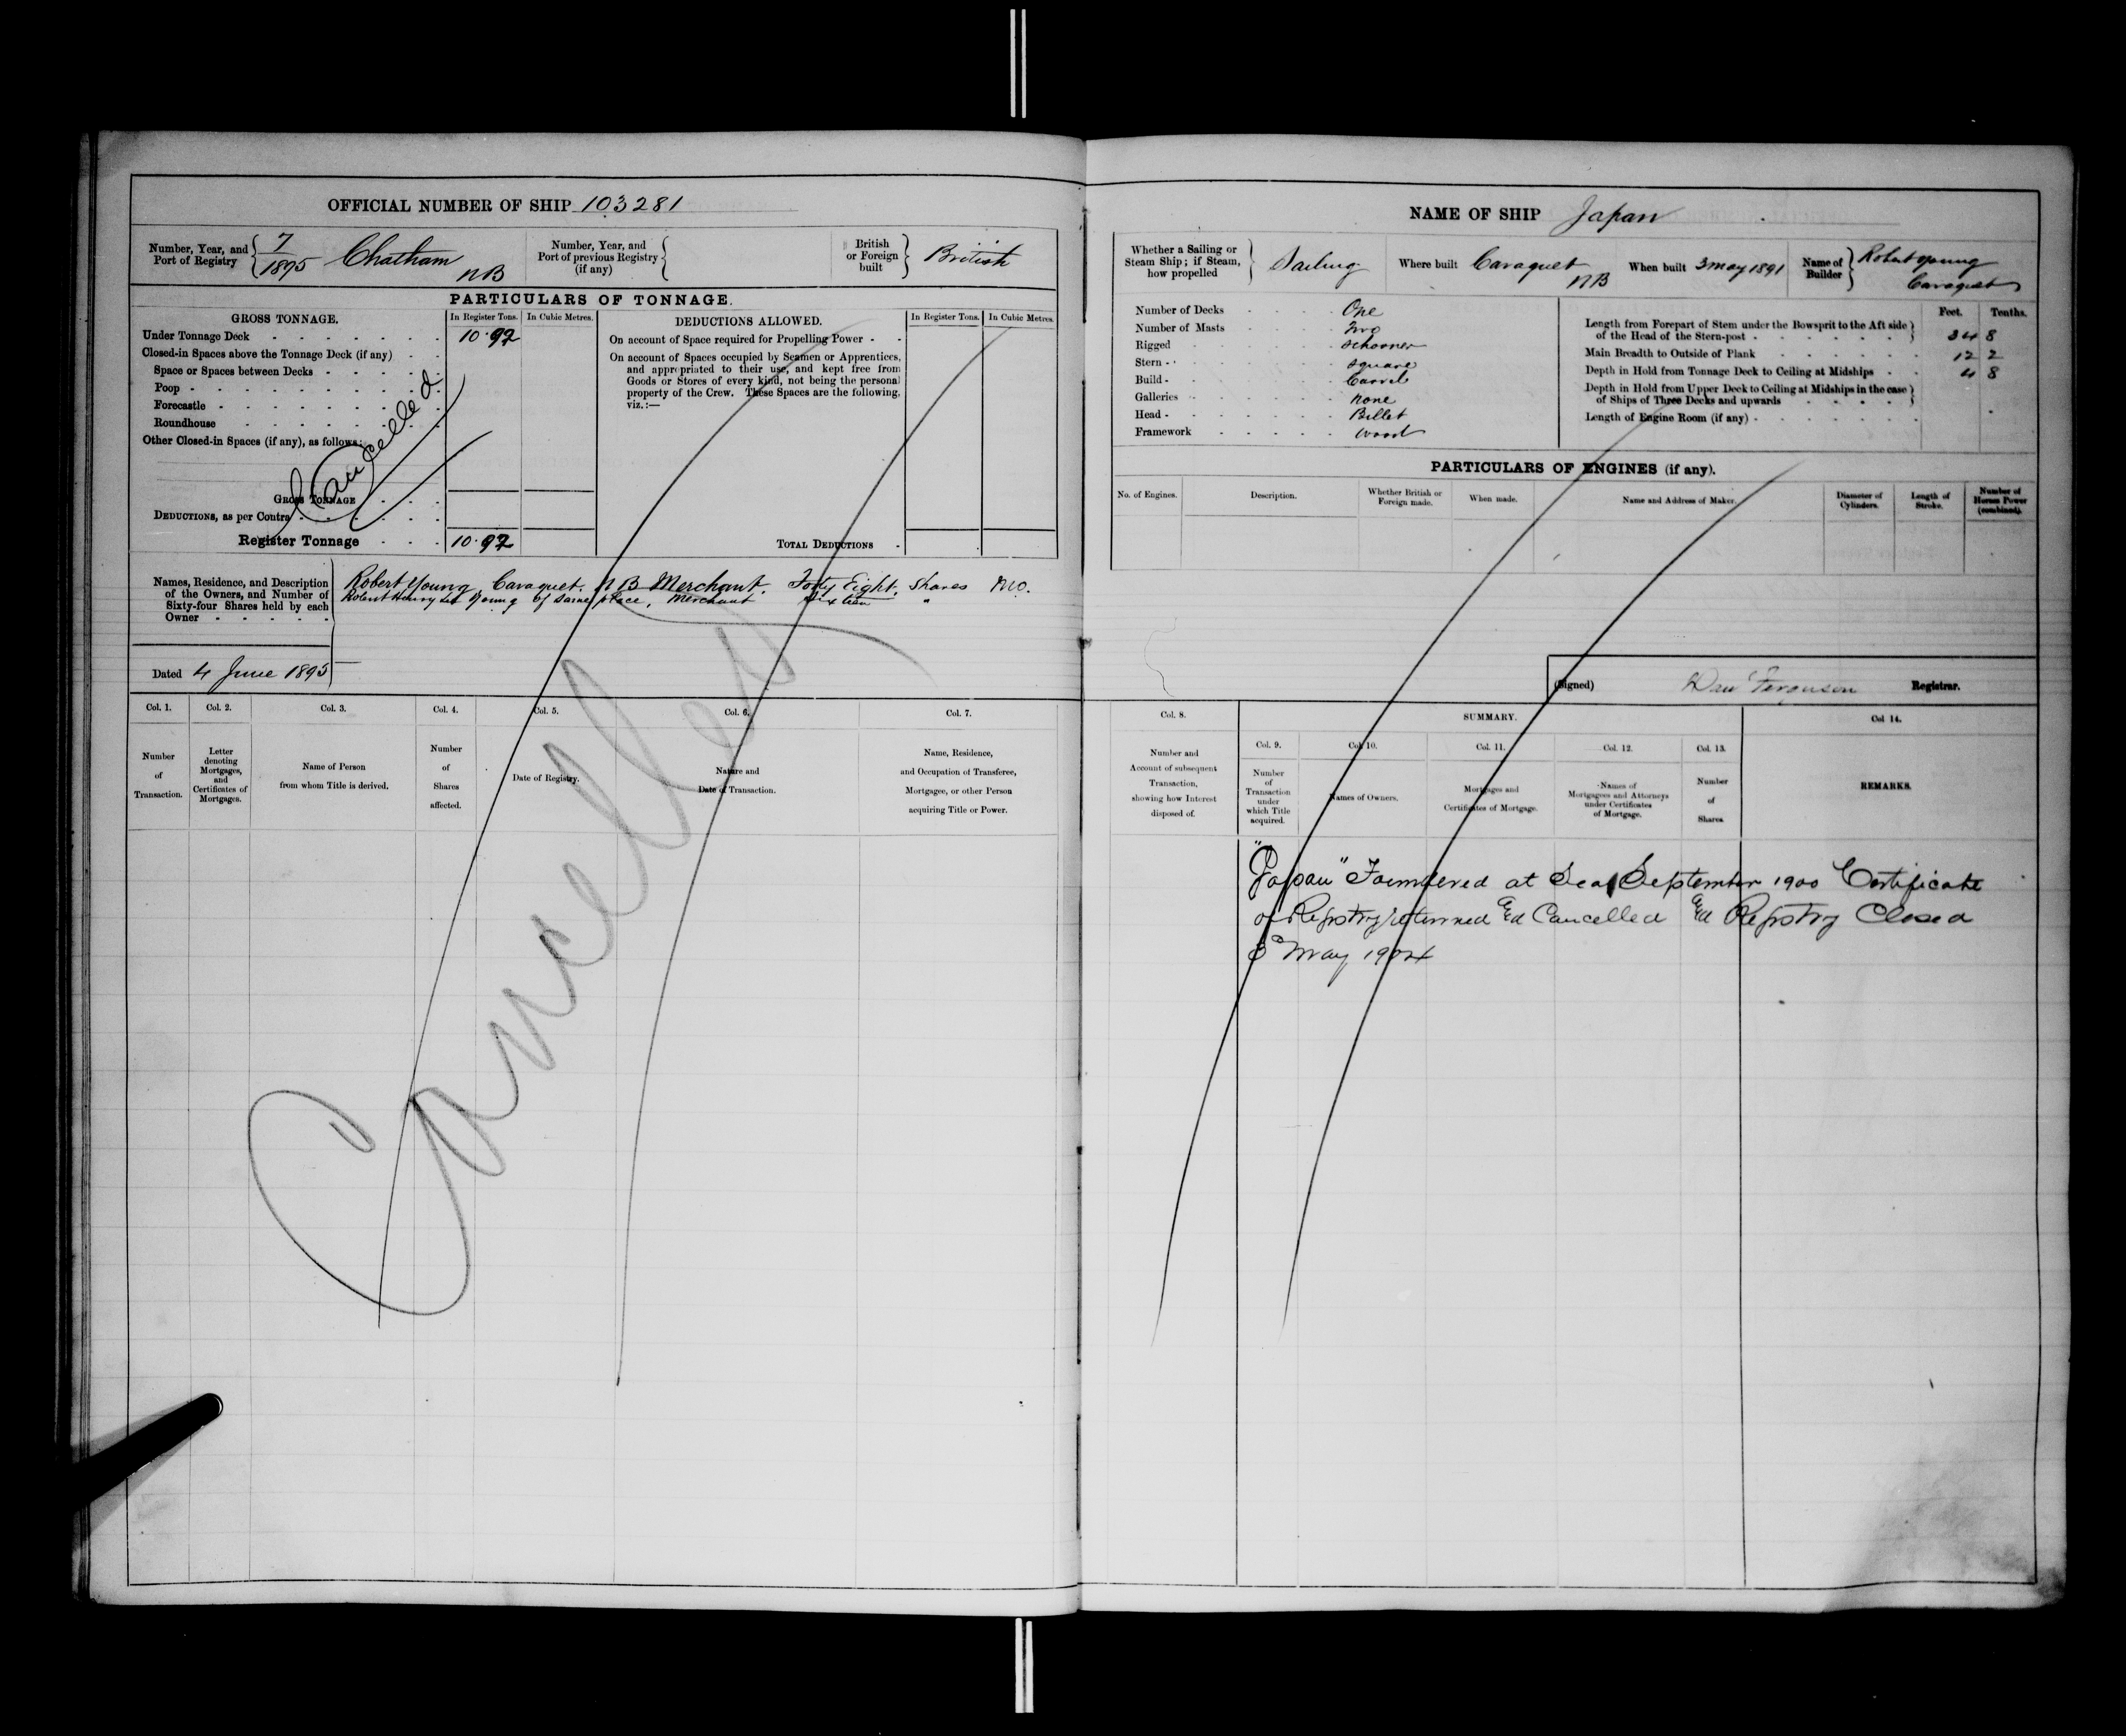 OFFICIAL NUMBER OF SHIP 103281
Number, Year, and Port of Registry 7/1895 Chatham NB
Number, Year, and Port of previous Registry (if any)
British or Foreign built British
PARTICULARS OF TONNAGE.
GROSS TONNAGE. In Register Tons. In Cubic Metres.
Under Tonnage Deck 10.92
Closed-in Spaces above the Tonnage Deck (if any)
Space or Spaces between Decks
Poop
Forecastle
Roundhouse
Other Closed-in Spaces (if any), as follows:
Cancelled
GROSS TONNAGE
DEDUCTIONS, as per Contra
Register Tonnage 10.92
DEDUCTIONS ALLOWED. In Register Tons. In Cubic Metres.
On account of Space required for Propelling Power
On account of Spaces occupied by Seamen or Apprentices,
and appropriated to their use, and kept free from
Goods or Stores of every kind, not being the personal
property of the Crew. These Spaces are the following,
viz.:—
TOTAL DEDUCTIONS
Names, Residence, and Description
of the Owners, and Number of
Sixty-four Shares held by each
Owner
Robert Young, Caraquet. N B Merchant. Forty Eight. Shares MO.
Robert Henry Young of same place, Merchant Sixteen "
Dated 4 June 1895
Col. 1. Col. 2. Col. 3. Col. 4. Col. 5. Col. 6. Col. 7.
Number of Transaction.
Letter denoting Mortgages, and Certificates of Mortgages.
Name of Person from whom Title is derived.
Number of Shares affected.
Date of Registry.
Nature and Date of Transaction.
Name, Residence, and Occupation of Transferee, Mortgagee, or other Person acquiring Title or Power.
Cancelled
NAME OF SHIP Japan
Whether a Sailing or Steam Ship; if Steam, how propelled Sailing
Where built Caraquet NB
When built 3 May 1891
Name of Builder Robert Young Caraquet
Number of Decks One
Number of Masts Two
Rigged Schooner
Stern Square
Build Carvel
Galleries None
Head Billet
Framework Wood
Feet. Tenths.
Length from Forepart of Stem under the Bowsprit to the Aft side
of the Head of the Stern-post 34 8
Main Breadth to Outside of Plank 12 2
Depth in Hold from Tonnage Deck to Ceiling at Midships 4 8
Depth in Hold from Upper Deck to Ceiling at Midships in the case
of Ships of Three Decks and upwards
Length of Engine Room (if any)
PARTICULARS OF ENGINES (if any).
No. of Engines. Description. Whether British or Foreign made. When made. Name and Address of Maker. Diameter of Cylinders. Length of Stroke. Number of Horse Power (combined).
(Signed) Dan Ferguson Registrar.
Col. 8. SUMMARY. Col 14.
Col. 9. Col. 10. Col. 11. Col. 12. Col. 13.
Number and Account of subsequent Transaction, showing how Interest disposed of.
Number of Transaction under which Title acquired.
Names of Owners.
Mortgages and Certificates of Mortgage.
Names of Mortgagees and Attorneys under Certificates of Mortgage.
Number of Shares
REMARKS.
"Japan" Foundered at Sea September 1900 Certificate
of Registry returned Cancelled Registry Closed
May 1904